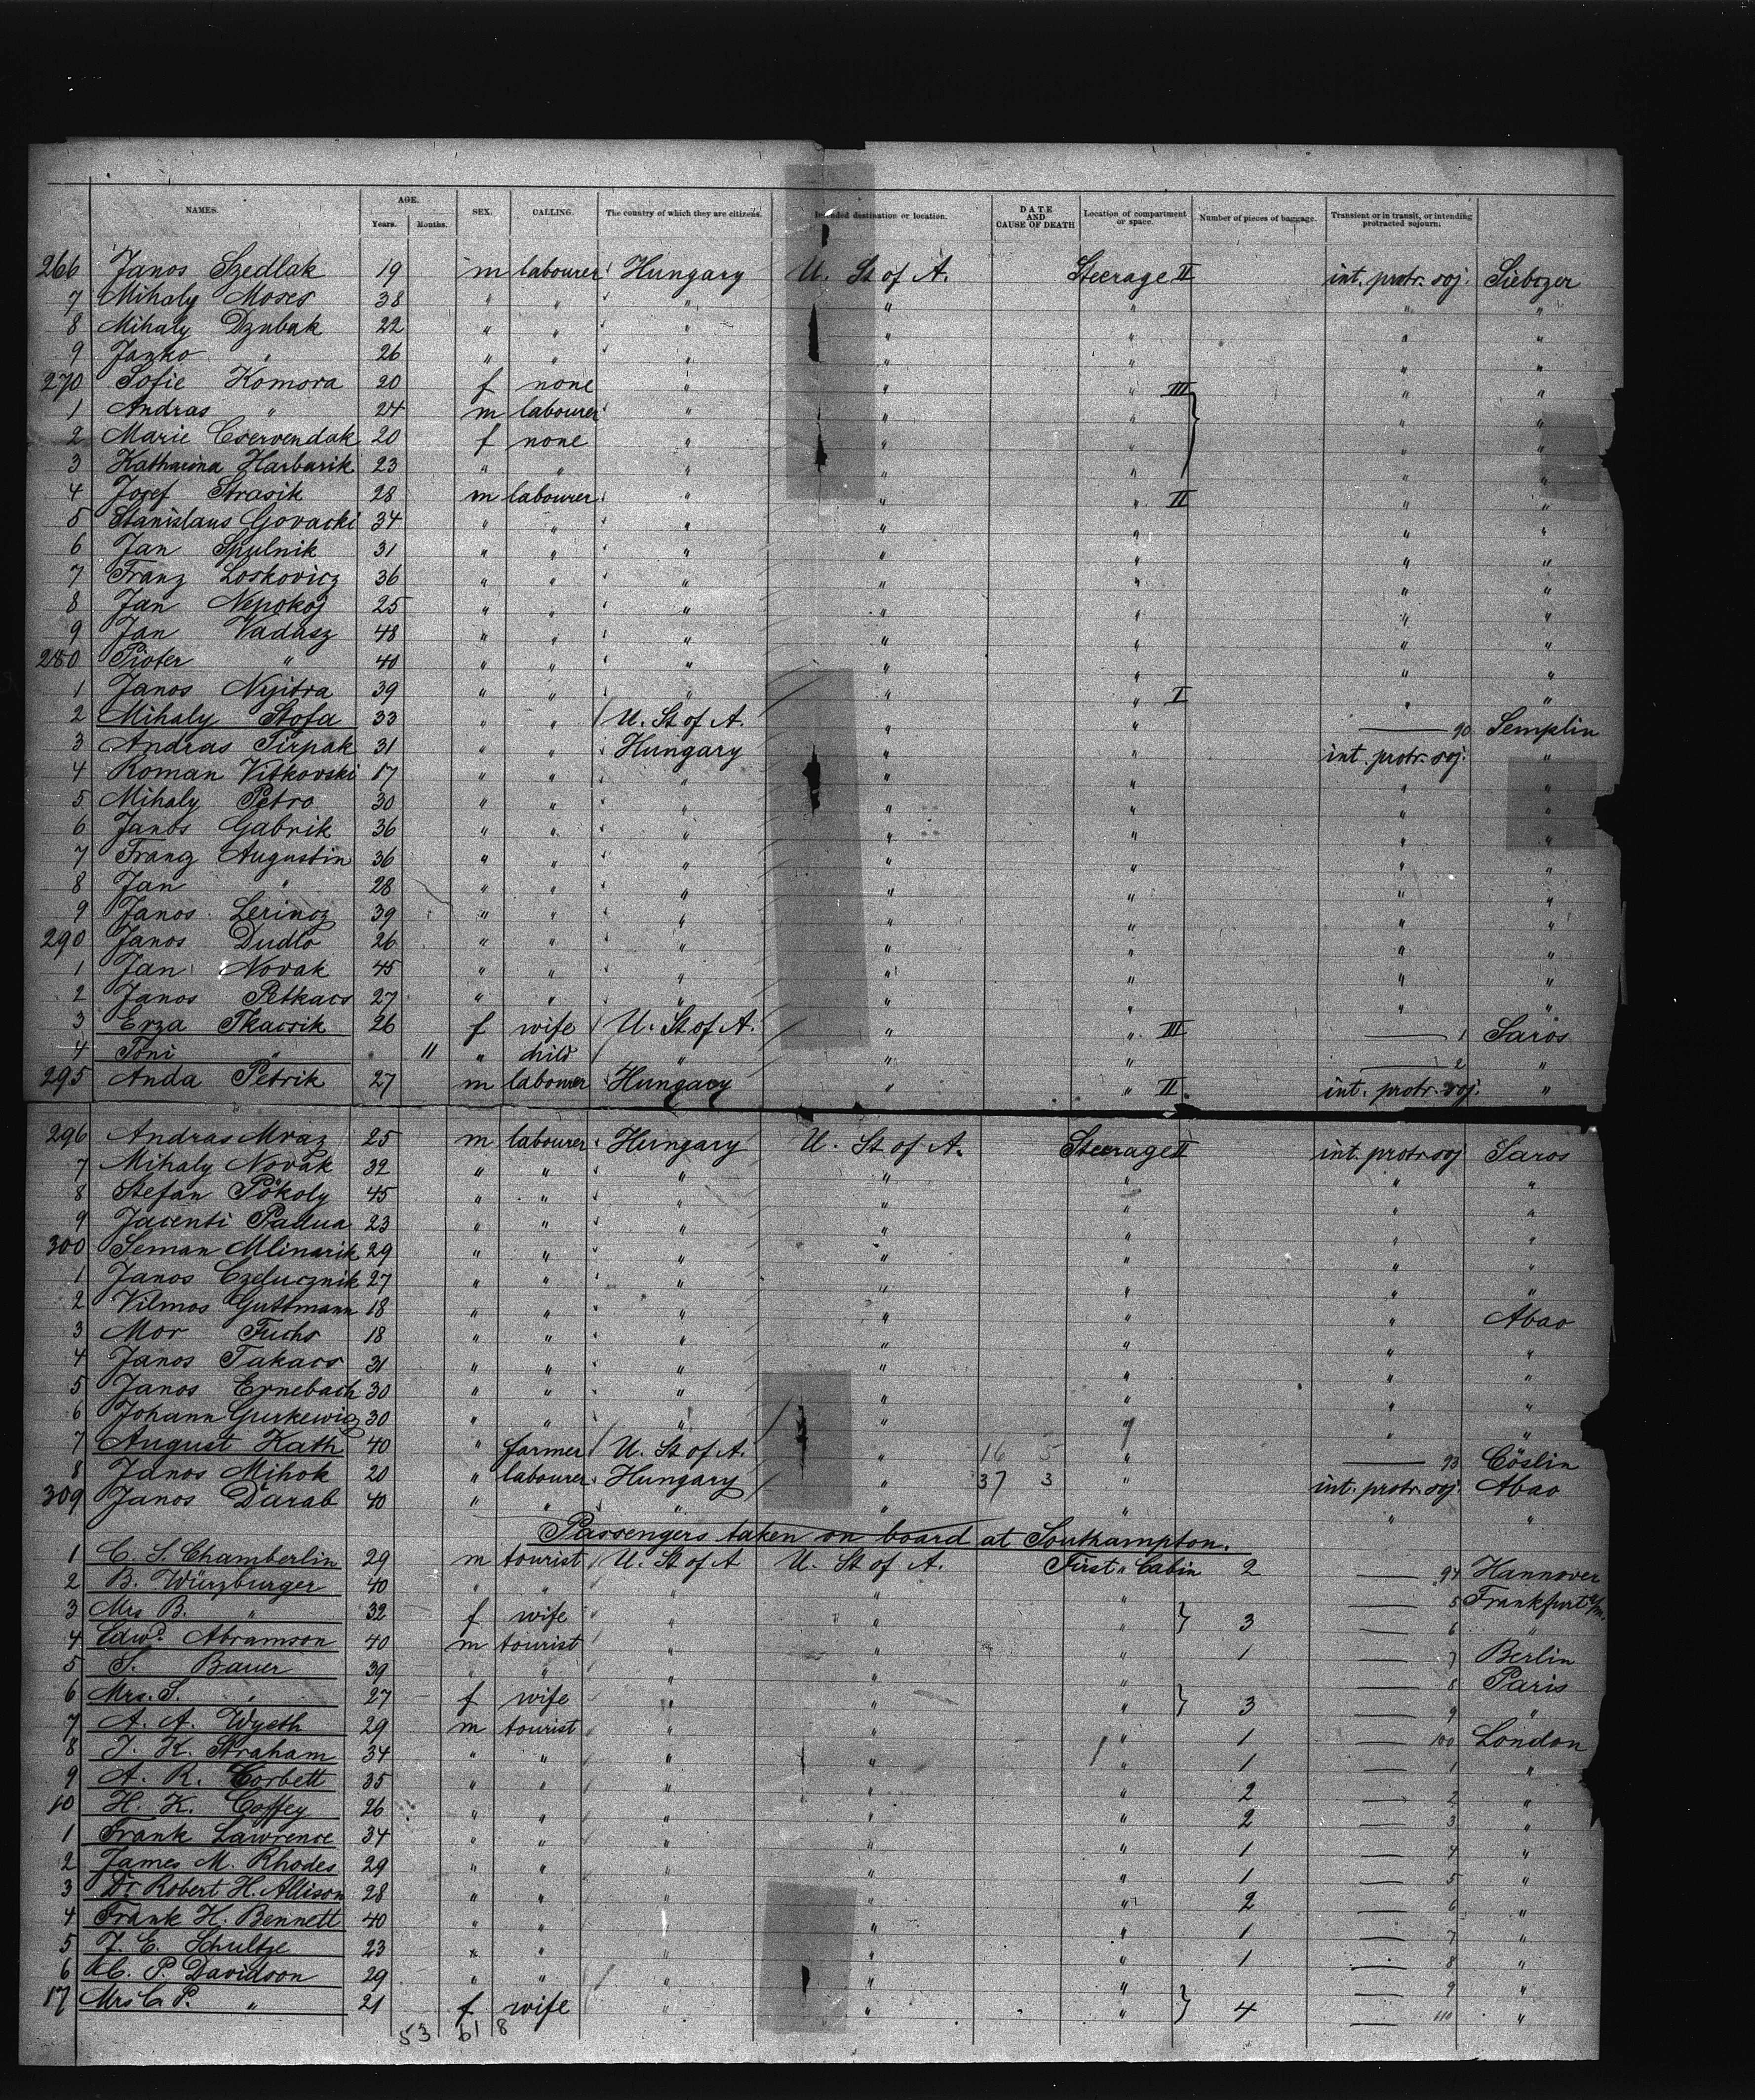 NAMES. AGE. Years. Months. SEX. CALLING. The country of which they are citizens. Intended destination or location. DATE AND CAUSE OF DEATH Location of compartment or space. Number of pieces of baggage. Transient or in transit, or intending protracted sojourn.
266 Janos Szedlak 19 m labourer Hungary U. St of A. Steerage II int. protr. soj. Siebozer
7 Mihaly Moses 38 " " " " " " "
8 Mihaly Dzubak 22 " " " " " " "
9 Janko " 26 " " " " " " "
270 Sofie Komora 20 f none " " " III " "
1 Andras " 24 m labourer " " " " "
2 Marie Cservendak 20 f none " " " " "
3 Katharina Harbarik 23 " " " " " " "
4 Josef Strasik 28 m labourer " " " II " "
5 Stanislaus Govacki 34 " " " " " " "
6 Jan Spulnik 31 " " " " " " "
7 Franz Loskovicz 36 " " " " " " "
8 Jan Nepokoj 25 " " " " " " "
9 Jan Vadasz 48 " " " " " " "
280 Pioter " 40 " " " " " " "
1 Janos Nyitra 39 " " " " " I " "
2 Mihaly Stofa 33 " " U. St of A. " " — 90 Semplin
3 Andras Tirpak 31 " " Hungary " " int. protr. soj. "
4 Roman Vitkovski 17 " " " " " " "
5 Mihaly Petro 30 " " " " " " "
6 Janos Gabrik 36 " " " " " " "
7 Franz Augustin 36 " " " " " " "
8 Jan " 28 " " " " " " "
9 Janos Lerincz 39 " " " " " " "
290 Janos Dudlo 26 " " " " " " "
1 Jan Novak 45 " " " " " " "
2 Janos Petkacs 27 " " " " " " "
3 Erza Tkacsik 26 f wife U. St of A. " " III — 1 Saros
4 Toni " 11 " child " " " — 2 "
295 Anda Petrik 27 m labourer Hungary " " II int. protr. soj. "
296 Andras Mraz 25 m labourer Hungary U. St of A. Steerage II int. protr soj Saros
7 Mihaly Novak 32 " " " " " " "
8 Stefan Pökoly 45 " " " " " " "
9 Jacenti Padua 23 " " " " " " "
300 Seman Mlinarik 29 " " " " " " "
1 Janos Czelucznik 27 " " " " " " "
2 Vilmos Guttmann 18 " " " " " " Abao
3 Mor Fuchs 18 " " " " " " "
4 Janos Takacs 31 " " " " " " "
5 Janos Ernebach 30 " " " " " " "
6 Johann Gurkewicz 30 " " " " " " "
7 August Kath 40 " farmer U. St of A. " 16 5 " — 93 Cöslin
8 Janos Mihok 20 " labourer Hungary " 37 3 " int. protr. soj. Abao
309 Janos Darab 40 " " " " " " "
Passengers taken on board at Southampton.
1 C. S. Chamberlin 29 m tourist U. St of A U. St of A. First Cabin 2 — 94 Hannover
2 B. Würzburger 40 " " " " " — 5 Frankfurt a/m.
3 Mrs B. " 32 f wife " " " 3 — 6 "
4 Edwd. Abramson 40 m tourist " " " 1 — 7 Berlin
5 S. Bauer 39 " " " " " — 8 Paris
6 Mrs. S. " 27 f wife " " " 3 — 9 "
7 A. A. Wyeth 29 m tourist " " " 1 — 100 London
8 J. K. Straham 34 " " " " " 1 — 1 "
9 A. R. Corbett 35 " " " " " 2 — 2 "
10 H. K. Coffey 26 " " " " " 2 — 3 "
1 Frank Lawrence 34 " " " " " 1 — 4 "
2 James M. Rhodes 29 " " " " " 1 — 5 "
3 Dr Robert H. Allison 28 " " " " " 2 — 6 "
4 Frank H. Bennett 40 " " " " " 1 — 7 "
5 J. E. Schultze 23 " " " " " 1 — 8 "
6 C. P. Davidson 29 " " " " " — 9 "
17 Mrs C. P. " 21 f wife " " " 4 — 110 "
53 61 8